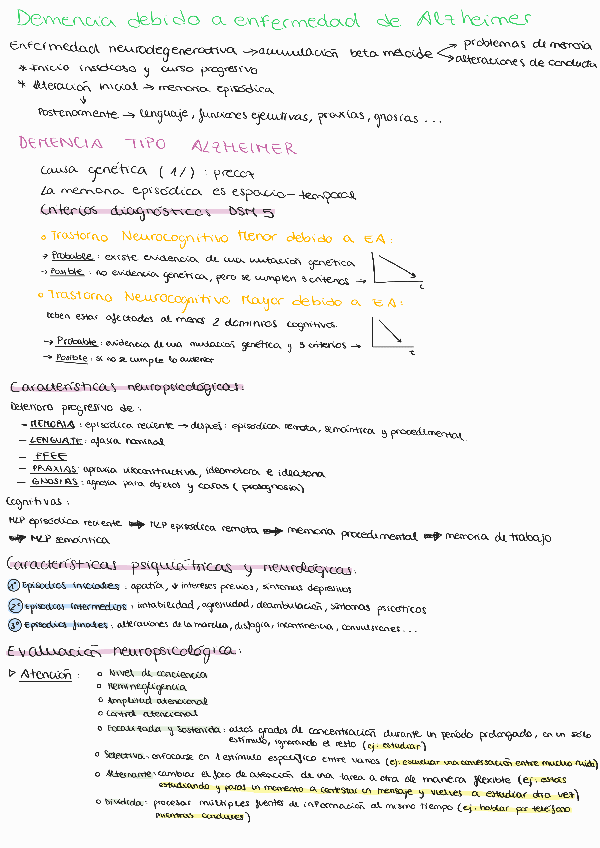 Demencia debido a enfermedad de Alzheimer
Enfermedad neurodegenerativa → acumulación beta meloide → problemas de memoria
→ alteraciones de conducta
* Inicio insidioso y curso progresivo
* Alteración inicial → memoria episódica
↓
Posteriormente → lenguaje, funciones ejecutivas, praxias, gnosias ...
DEMENCIA TIPO ALZHEIMER
Causa genética (1/) : precoz
La memoria episódica es espacio-temporal
Criterios diagnósticos DSM 5
• Trastorno Neurocognitivo Menor debido a EA:
→ Probable: existe evidencia de una mutación genética
→ Posible: no evidencia genética, pero se cumplen 3 criterios → t
• Trastorno Neurocognitivo Mayor debido a EA:
Deben estar afectados al menos 2 dominios cognitivos.
→ Probable: evidencia de una mutación genética y 3 criterios → t
→ Posible: si no se cumple lo anterior
Características neuropsicológicas:
Deterioro progresivo de:
- MEMORIA: episódica reciente → después: episódica remota, semántica y procedimental.
- LENGUAJE: afasia nominal
- FFEE
- PRAXIAS: apraxia visoconstructiva, ideomotora e ideatoria
- GNOSIAS: agnosia para objetos y caras (prosognosia)
Cognitivas:
MLP episódica reciente ➡ MLP episódica remota ➡ memoria procedimental ➡ memoria de trabajo
➡ MLP semántica
Características psiquiátricas y neurológicas:
1º Episodios iniciales: apatía, ↓ intereses previos, síntomas depresivos
2º Episodios intermedios: irritabilidad, agresividad, deambulación, síntomas psicóticos
3º Episodios finales: alteraciones de la marcha, disfagia, incontinencia, convulsiones...
Evaluación neuropsicológica:
▷ Atención: o Nivel de conciencia
o Heminegligencia
o Amplitud atencional
o Control atencional
o Focalizada y Sostenida: altos grados de concentración durante un período prolongado, en un sólo
estímulo, ignorando el resto (ej: estudiar)
o Selectiva: enfocarse en 1 estímulo específico entre varios (ej: escuchar una conversación entre mucho ruido)
o Alternante: cambiar el foco de atención de una tarea a otra de manera flexible (ej: estás
estudiando y paras un momento a contestar un mensaje y vuelves a estudiar otra vez)
o Dividida: procesar múltiples fuentes de información al mismo tiempo (ej: hablar por teléfono
mientras conduces)